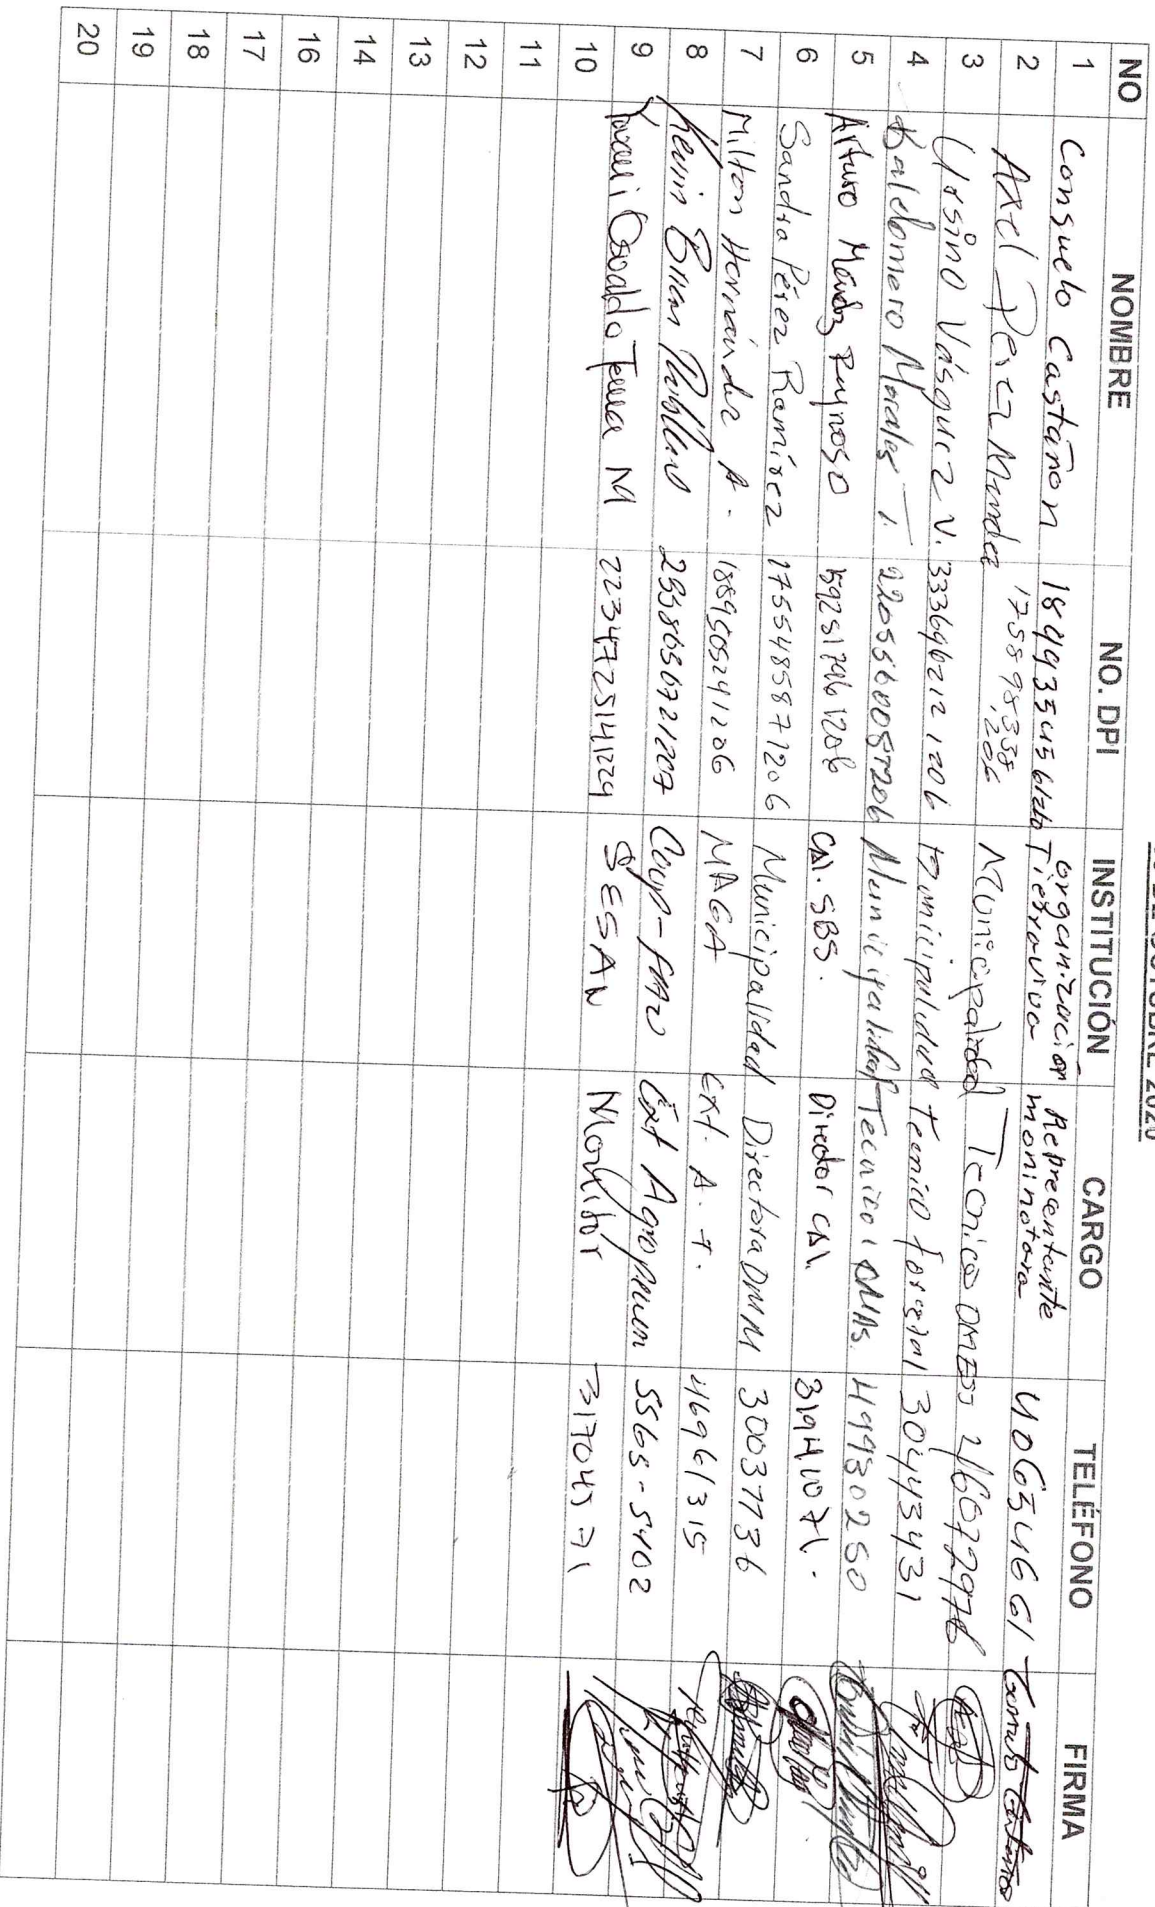 OCTUBRE 2020
NO NOMBRE NO. DPI INSTITUCIÓN CARGO TELÉFONO FIRMA
1 Consuelo Castañon organización Tierraviva Reprecentante moninotora 40634661
2 Axel Perez Mendez 1758 98338 1206 Municipalidad Tecnico OMES 46072976
3 Ursino Vásquez V. 3336962121206 Municipalidad Tecnico forestal 30443431
4 Baldomero Morales T. 2205560081206 Municipalidad Tecnico 49930250
5 Arturo Méndez Reynoso CAI. SBS. Director CAI. 31941071.
6 Sandra Pérez Ramírez 1755485871206 Municipalidad Directora DMM 30037736
7 Milton Hernández A. 1889505241206 MAGA Ext. A. T. 46961315
8 Kevin 2958656721207 Ext 5565-5402
9 Osvaldo M 2234725141224 SESAN Monitor 31704571
10
11
12
13
14
16
17
18
19
20